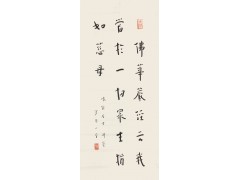 佛華嚴經云我
當於一切眾生猶
如慈母